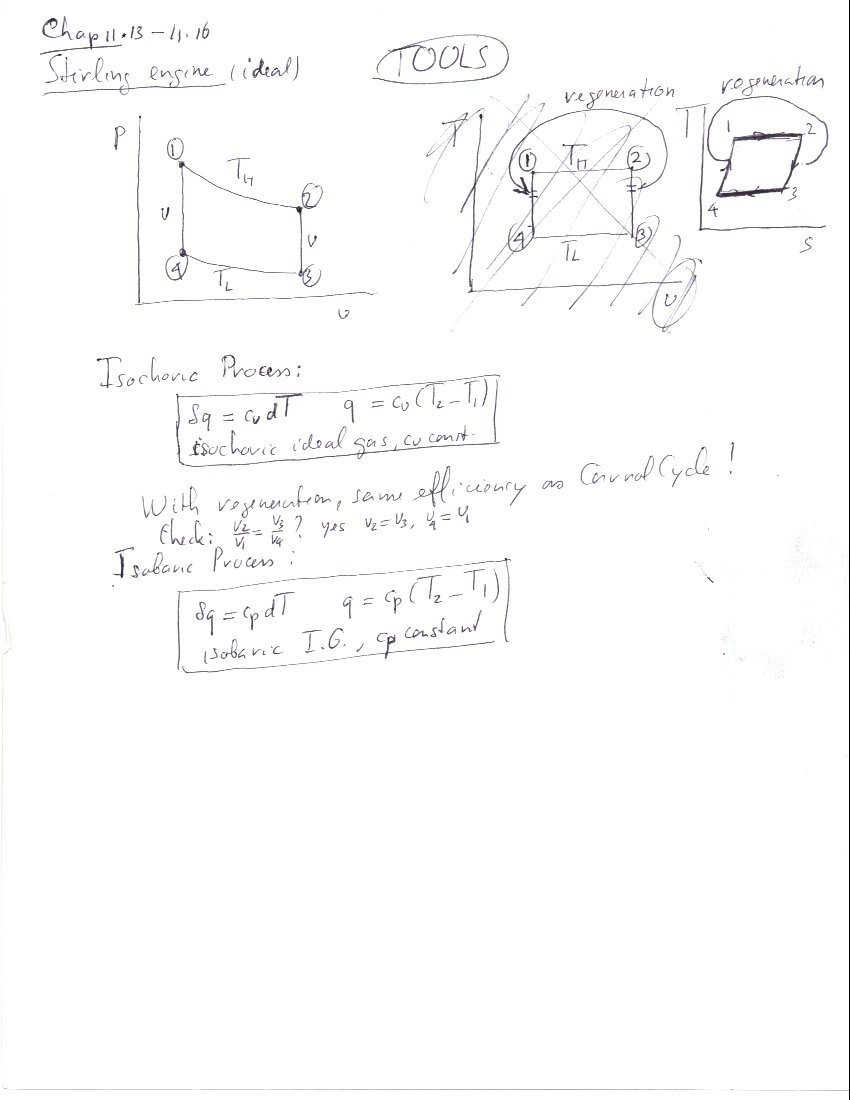 Chap 11.13 - 11.16
Stirling engine (ideal)
TOOLS
P
1
T_H
2
v
v
4
T_L
3
v
regeneration
T
1
T_H
2
4
T_L
3
v
regeneration
T
1
2
4
3
s
Isochoric Process:
δq = c_v dT q = c_v (T_2 - T_1)
isochoric ideal gas, c_v const.
With regeneration, same efficiency as Carnot Cycle !
Check: v_2/v_1 = v_3/v_4 ? yes v_2 = v_3, v_4 = v_1
Isobaric Process :
δq = c_p dT q = c_p (T_2 - T_1)
isobaric I.G., c_p constant